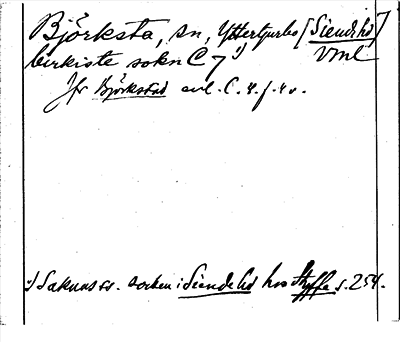 Björksta, sn, Yttertjurbo [Siendehd]
birkiste sokn C 7 1) Vml
Jfr Björkstad avl. C. 4. f. 4 v.
1) Saknas ss. socken i Siende hd hos Styffe s. 254.